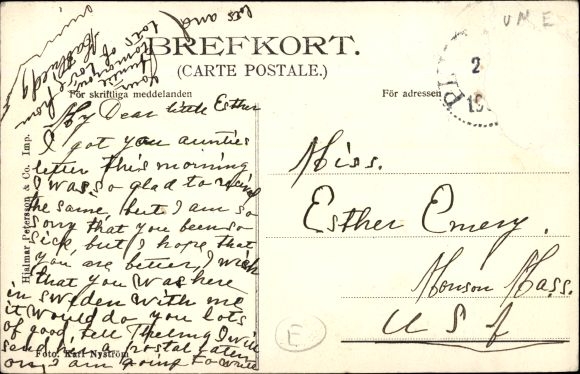 U M E
BREFKORT.
(CARTE POSTALE.)
För skriftliga meddelanden
För adressen
2
19
My Dear little Esther
I got you aunties
letter this morning
I was so glad to
the same, but I am so
sorry that you been so
sick, but I hope that
you are better, I wish
that you was here
in Sweden with me
it would do you lots
of good, tell Thelma I will
send her a postal later
on, I am going to write
lots of love from
Miss.
Esther Emery.
Monson Mass.
U S A
E
Hjalmar Petersson & Co. Imp.
Foto. Karl Nyström